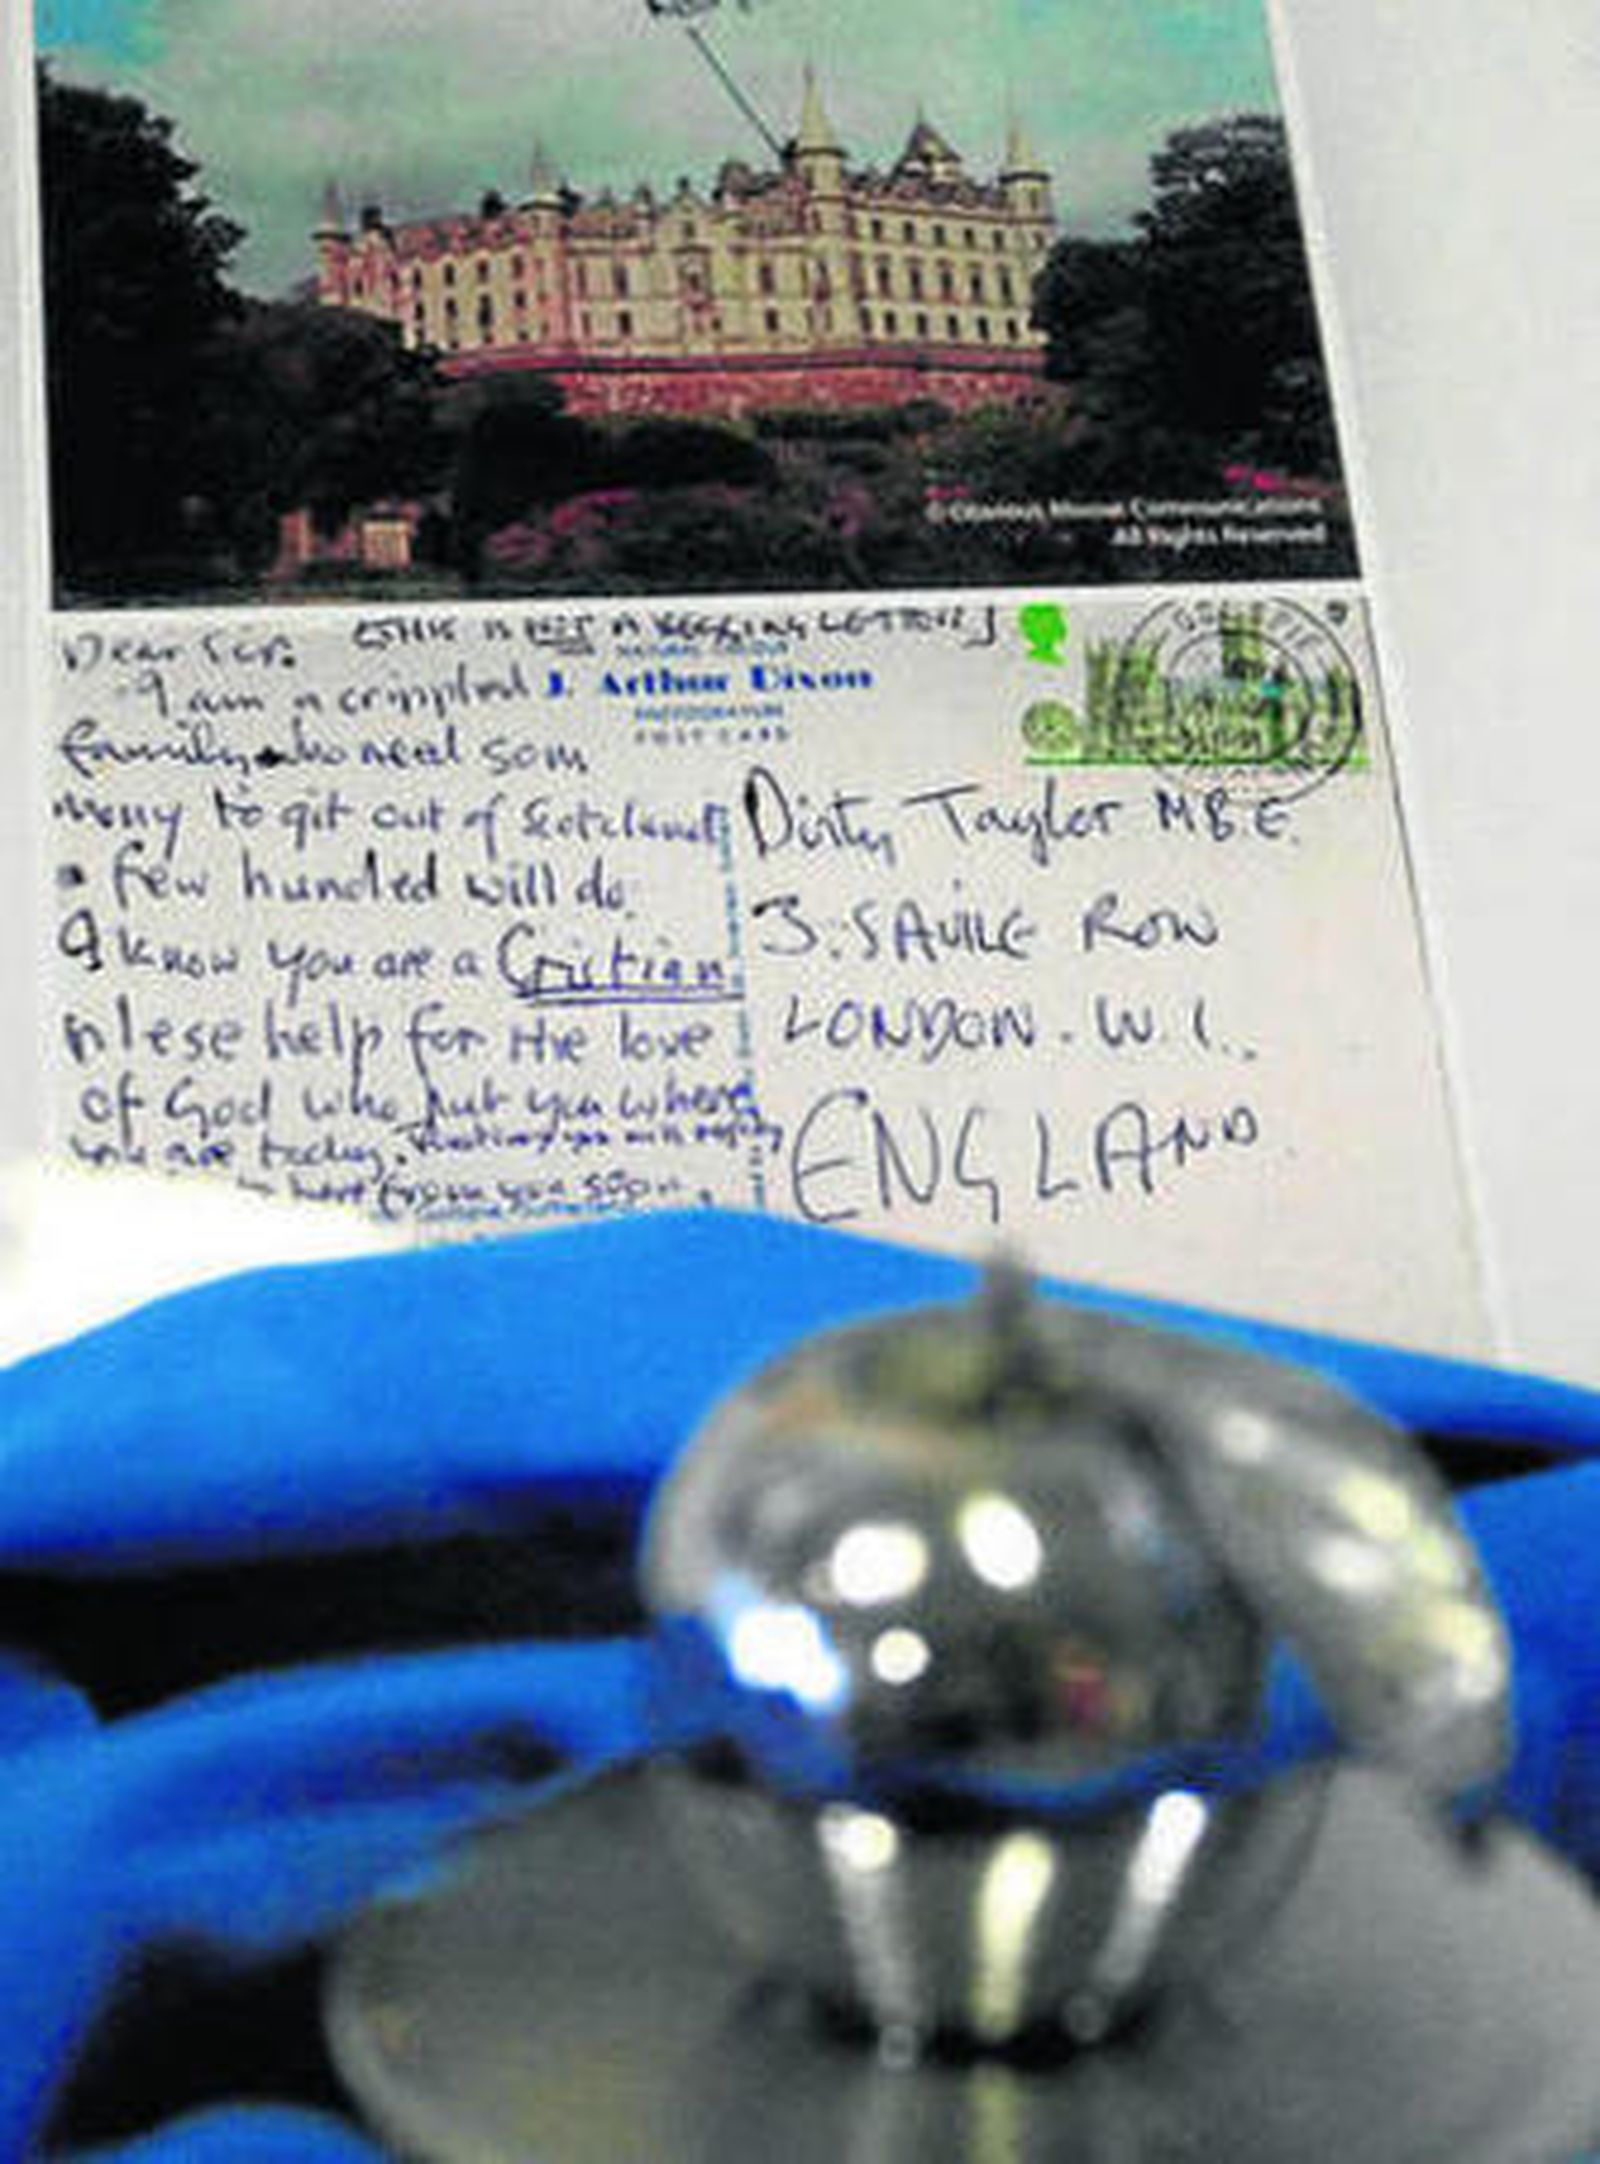 © Obvious Moose Communications
All Rights Reserved
Dear Sir. (THIS IS NOT A BEGGING LETTER]
NATURAL COLOUR
J. Arthur Dixon
PHOTOGRAVURE
POST CARD
I am a crippled
family who need som
mony to git out of Scotcland
a few hundled will do.
I know you are a Cristian
plese help for the love
of God who put you where
you are today. Thanking you
from you soon.
Dirty Taylor M.B.E.
3. SAVILE ROW
LONDON. W.1.
ENGLAND.